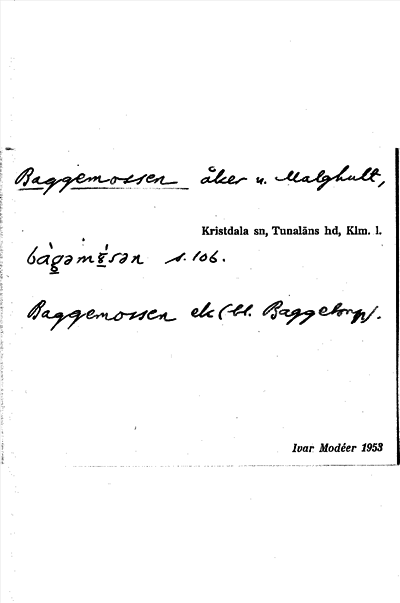 Baggemossen åker u. Malghult,
Kristdala sn, Tunaläns hd, Klm. l.
s. 106.
Baggemossen ek (bl. Baggetorp).
Ivar Modéer 1953